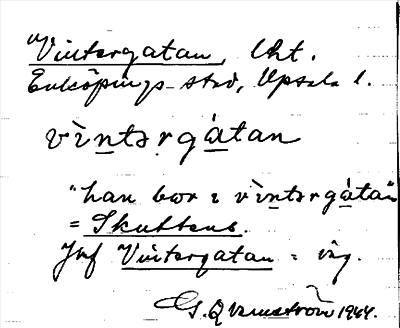 "Vintergatan, lht.
Enköpings stad, Upsala l.
vìntərgátan
"han bor ı vìntərgátan"
= Skuttens.
Jmf Vintergatan = väg.
G. Qvarnström 1944.